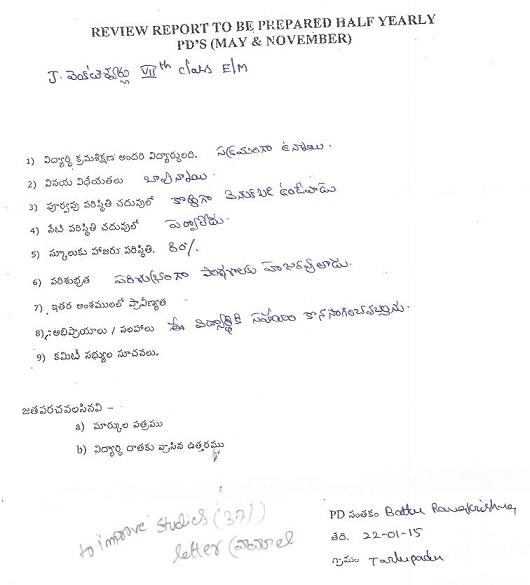 REVIEW REPORT TO BE PREPARED HALF YEARLY
PD'S (MAY & NOVEMBER)
J. వెంకటేశ్వర్లు VII th class E/M
1) విద్యార్థి క్రమశిక్షణ అందరి విద్యార్థులది. సక్రమంగా ఉన్నాయి.
2) వినయ విధేయతలు బావున్నాయి.
3) పూర్వపు పరిస్థితి చదువులో కాస్తంగా వెనుకబడి ఉండేవాడు
4) నేటి పరిస్థితి చదువులో పర్వాలేదు.
5) స్కూలుకు హాజరు పరిస్థితి. 80%.
6) పరిశుభ్రత పరిశుభ్రంగా పాఠశాలకు హాజరవుతాడు.
7) ఇతర అంశములలో ప్రావీణ్యత
8) అభిప్రాయాలు / సలహాలు ఈ విద్యార్థికి సహాయం కొనసాగించవచ్చును.
9) కమిటీ సభ్యుల సూచనలు.
జతపరచవలసినవి –
a) మార్కుల పత్రము
b) విద్యార్థి దాతకు వ్రాసిన ఉత్తరము
to improve studies (37/)
letter
PD సంతకం Battu Ramakrishna
తేది. 22-01-15
గ్రామం Tarlupadu